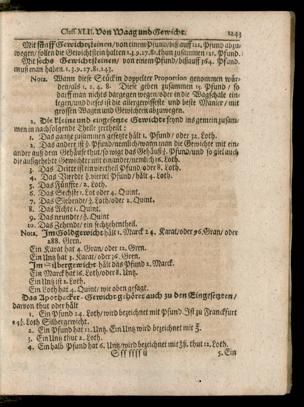 Class. XLII. Von Waag und Gewicht. 1243
Mit fünff Gewichtsteinen / von einem Pfund / biß auff 121. Pfund abzu-
wegen / sollen die Gewichtstein halten 1. 3. 9. 27. 81. thut zusammen 121. Pfund.
Mit sechs Gewichtsteinen, von einem Pfund / biß auff 364. Pfund
muß man halten 1. 3. 9. 27. 81. 243.
Nota. Wann diese Stück in doppelter Proportion genommen wür-
den / als 1. 2. 4. 8. Diese geben zusammen 15. Pfund / so
darff man nichts dargegen wegen oder in die Wagschale ein-
legen / und dieses ist die allergewisseste und beste Manier / mit
grossen Wagen und Gewichten abzuwegen.
2. Die kleine und eingesetzte Gewichte seynd ins gemein zusam-
men in nachfolgende Theile zertheilt:
1. Das gantz zusammen gesetzte hält 1. Pfund / oder 32. Loth.
2. Das ander ist ½ Pfund / nemlich / wann man die Gewichte mit ein-
ander auß dem Gehäuß thut / so wigt das Gehäuß ½. Pfund / und so viel auch
die außgehebte Gewichter mit einander / nemlich 16. Loth.
3. Das Dritte ist ein viertheil Pfund / oder 8. Loth.
4. Das Vierdte ½ viertel Pfund / hält 4. Loth.
5. Das Fünffte / 2. Loth.
6. Das Sechste 1. Lot oder 4. Quint.
7. Das Siebende / ½ Loth / oder 2. Quint.
8. Das Achte 1. Quint.
9. Das neundte / ½ Quint
10. Das Zehende / ein sechtzehentheil.
Nota. Im Goldgewicht hält 1. Marck 24. Karat / oder 96. Gran / oder
288. Gren.
Ein Karat hat 4. Gran / oder 12. Gren.
Ein Untz hat 3. Karat / oder 36. Gren.
Im Silbergewicht hält das Pfund 2. Marck.
Ein Marck hat 16. Loth / oder 8. Untz.
Ein Untz hält 2. Loth.
Ein Loth hat 4. Quint / wie oben gesagt.
Das Apothecker-Gewicht gehöret auch zu den Eingesetzten /
darvon thut oder hält
1. Ein Pfund 24. Loth / wird bezeichnet mit Pfund. Ist zu Franckfurt
Loth Silbergewicht.
2. Ein Pfund hat 12. Untz. Ein Untz wird bezeichnet mit ℥.
3. Ein Untz thut 2. Loth.
4. Ein halb Pfund hat 6. Untz / wird bezeichnet mit ℥ß. thut 12. Loth.
Sff ffff ij 5. Ein